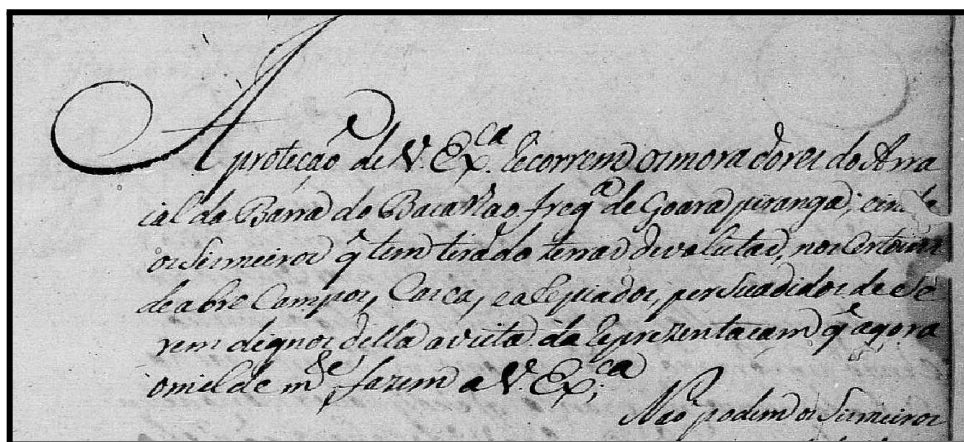 A proteção de V. Ex.ca recorrem os moradores do Arra
ial da Barra do Bacalhao freg.a de Goarapiranga, e
os Sismeiros q̃ tem tirado terras devolutas, nos Certoins
de abre Campos, Casca, e alejiados, persuadidos de se
rem dignos della a vista da reprezentacam q̃ agora
omilde m.te fazem a V. Ex.ca;
Não podem os Sismeiros